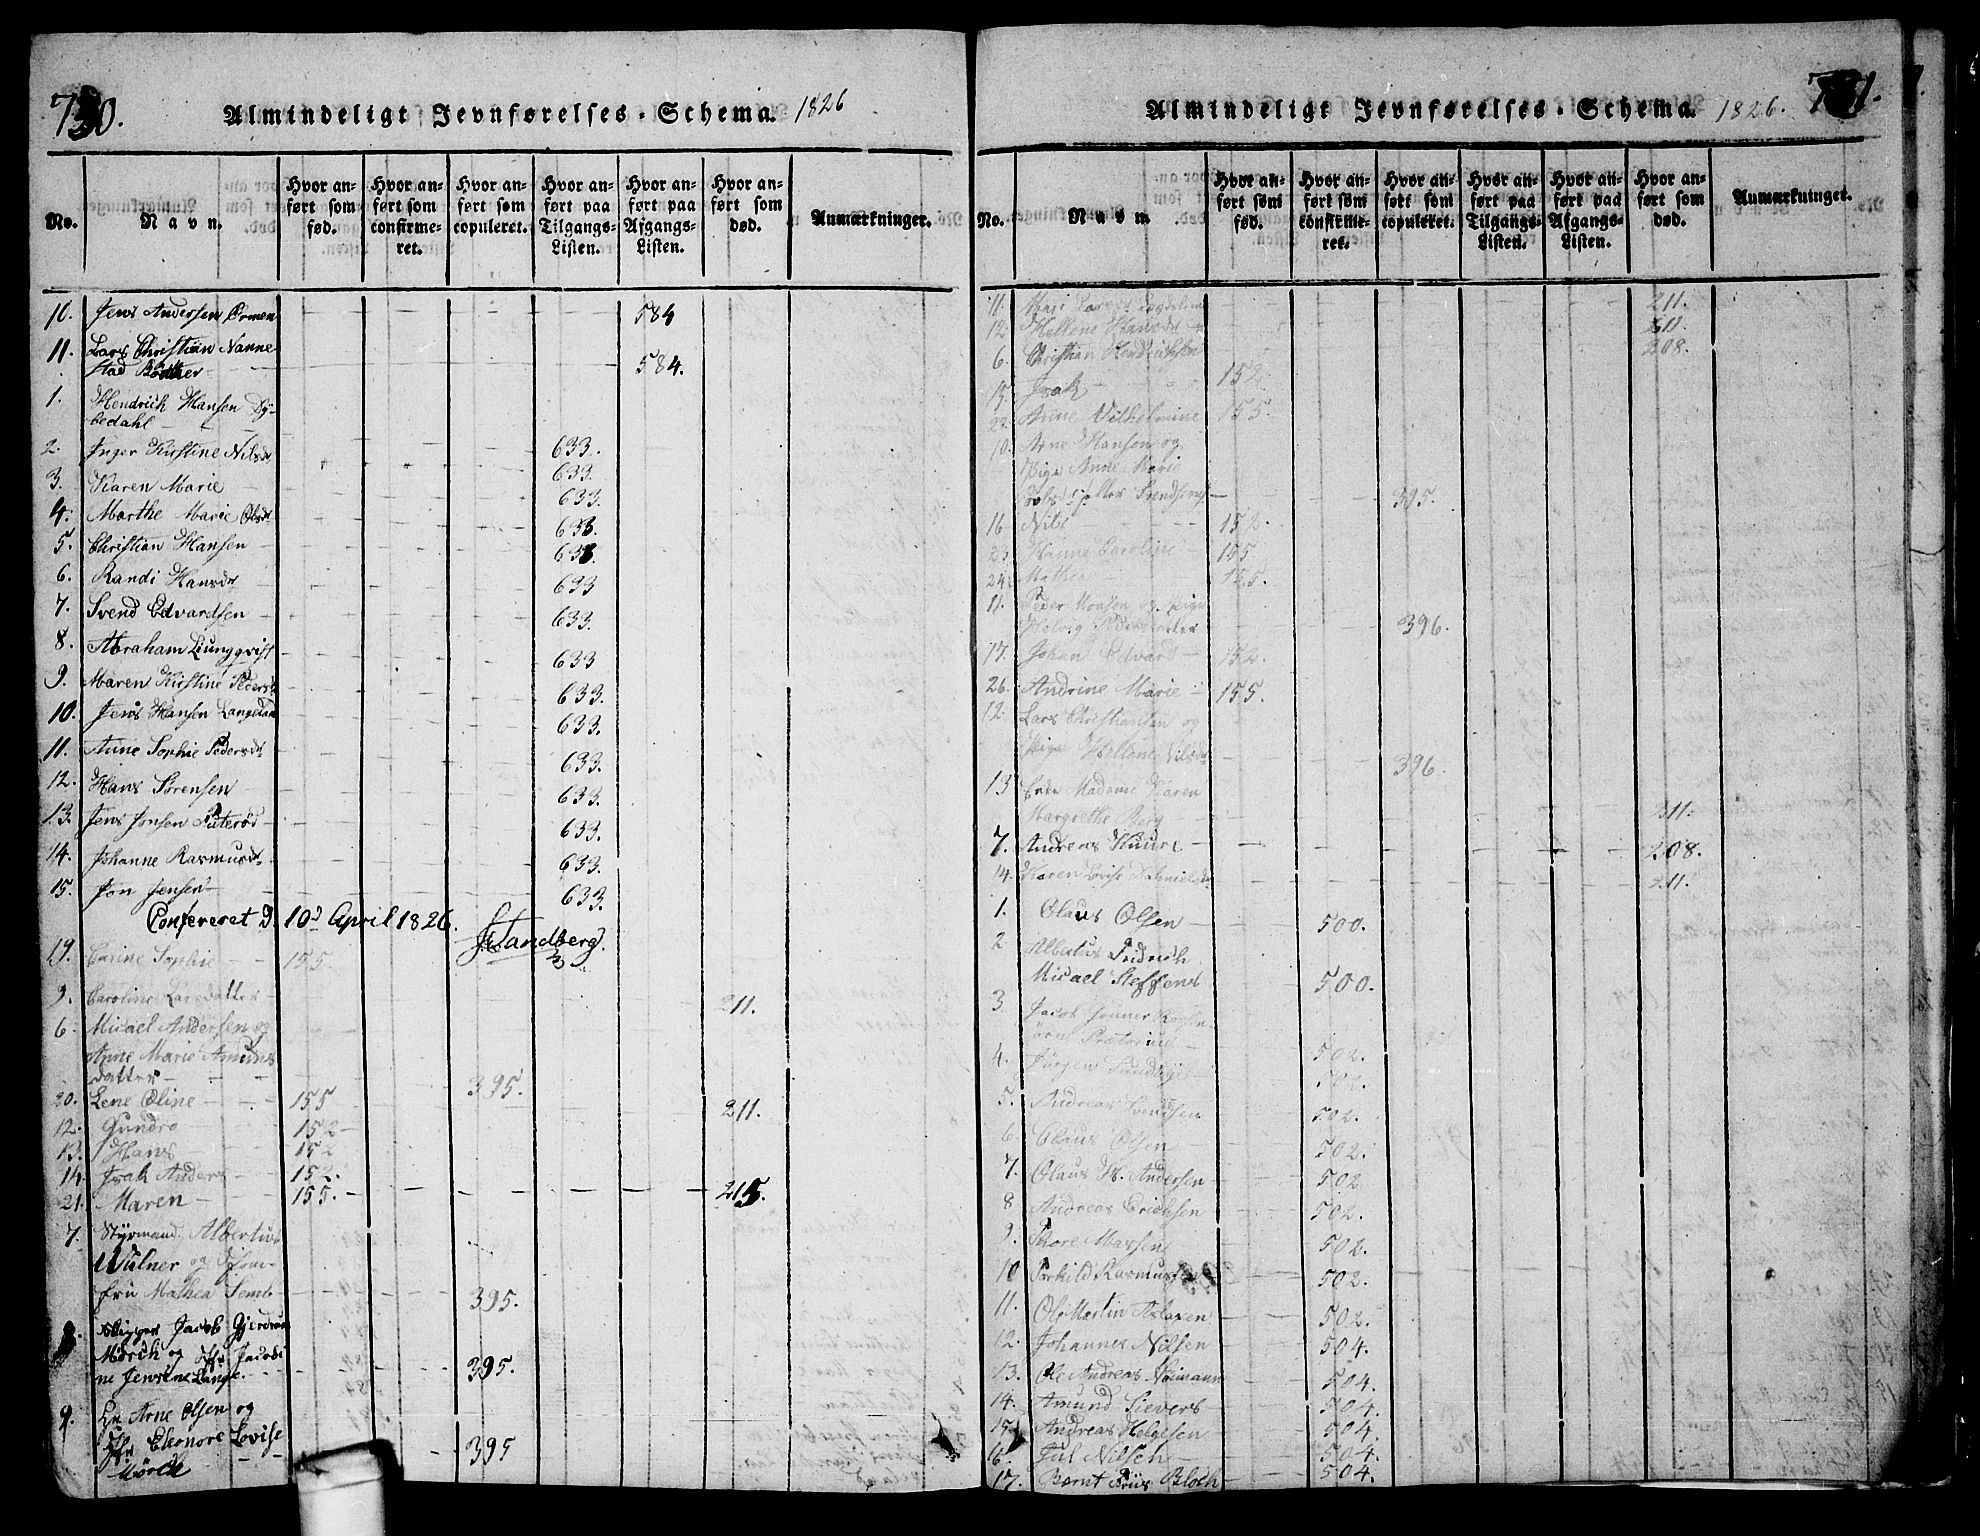 730.
Almindeligt Jevnførelses-Schema. 1826
No.
Navn.
Hvor an-
ført som
fød.
Hvor an-
ført som
confirme-
ret.
Hvor an-
ført som
copuleret.
Hvor an-
ført paa
Tilgangs-
Listen.
Hvor an-
ført paa
Afgangs-
Listen.
Hvor an-
ført som
død.
Anmærkninger.
10. Jens Andersen Ormen 584
11. Lars Christian Nanne-
stad Bøttker 584.
1. Hendrich Hansen Dÿ-
bedahl 633.
2. Inger Kirstine Nilsdr 633.
3. Karen Marie 633.
4. Marthe Marie Olsdr 633.
5. Christian Hansen 633.
6. Randi Hansdr 633
7. Svend Edvardsen 633.
8. Abraham Liungqvist 633
9. Maren Kirstine Pedersdr 633.
10. Jens Hansen Langedan 633.
11. Anne Sophie Pedersdr 633.
12. Hans Sørensen 633.
13. Jens Jonsen Puterød 633.
14. Johanne Rasmusdr. 633.
15. Jon Jensen 633.
Confereret D. 10d April 1826. Sandberg.
19. Carine Sophie 155.
9. Caroline Larsdatter 211.
6. Micael Andersen og
Anne Marie Amunds
datter 395.
20. Lene Oline 155 211.
12. Gundro 152
13. Hans 152
14. Isak Anders 152.
21. Maren 155. 215.
7. Styrmand Albertus
Wulner og Jom-
fru Mathea Semb 395.
8. Skipper Jacob Gjerdrum
Mørch og Jfr Jacobi
ne Jensine Lange. 395.
9. Hr Arne Olsen og
Jfr Eleonore Lovise
Mørch 395
Almindeligt Jevnførelses-Schema. 1826. 731.
No.
Navn
Hvor an-
ført som
fød.
Hvor an-
ført som
confirme-
ret.
Hvor an-
ført som
copuleret.
Hvor an-
ført paa
Tilgangs-
Listen.
Hvor an-
ført paa
Afgangs-
Listen.
Hvor an-
ført som
død.
Anmærkninger.
11. Mari Larsdr 211.
12 Hellene Hansdr 211.
6. Christian Hendrichsen 208.
15. Isak 152
22 Anne Vilhelmine 155.
10. Arne Hansen og
Pige Anne Marie
Svendsen 395.
16 Nils 152.
23 Hanne Caroline 155
24. Mathea 155.
11. Peder Monsen og Pige
Helvig Pedersdatter 396.
17. Johan Edvart 152.
26. Andrine Marie 155.
12. Lars Christiansen og
Pige Hellene Nilsdr 396.
13 Enke Madame Karen
Margrethe Berg 211.
7. Andreas Kuure 208.
14. Karen Lovise Danielsdr 211.
1. Olaus Olsen 500.
2 Albertus Fridrich
Micael Steffens 500.
3 Jacob Jenner
Prætorius 502.
4. Jørgen Sundbye 502.
5. Andreas Svendsen 502.
6. Olaus Olsen 502.
7. Olaus H. Andersen 502
8 Andreas Erichsen 502.
9. Thore Marsen 502.
10 Torkild Rasmussen 502.
11. Ole Martin Aslaxen 502.
12. Johannes Nilsen 504.
13. Ole Andreas Noimann 504.
14. Amund Sievers 504.
15. Andreas Helgesen 504.
16. Jul Nilsen 504.
17. Bernt Friis Bloch 504.